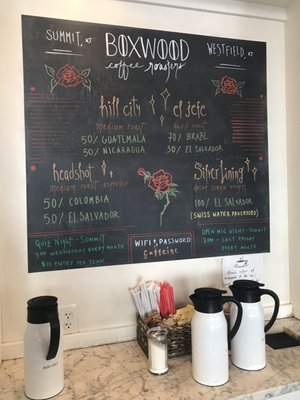 SUMMIT, NJ
BOXWOOD
coffee roasters
WESTFIELD, NJ
hill city
medium roast
50% GUATEMALA
50% NICARAGUA
el jefe
dark roast
70% BRAZIL
30% EL SALVADOR
headshot
medium roast espresso
50% COLOMBIA
50% EL SALVADOR
Silver lining
decaf single origin
100% EL SALVADOR
(SWISS WATER PROCESSED)
QUIZ NIGHT - SUMMIT
3rd WEDNESDAY every MONTH
$10 ENTRY per TEAM
WIFI PASSWORD
caffeine
OPEN MIC NIGHT - SUMMIT
7PM - LAST FRIDAY
EVERY MONTH